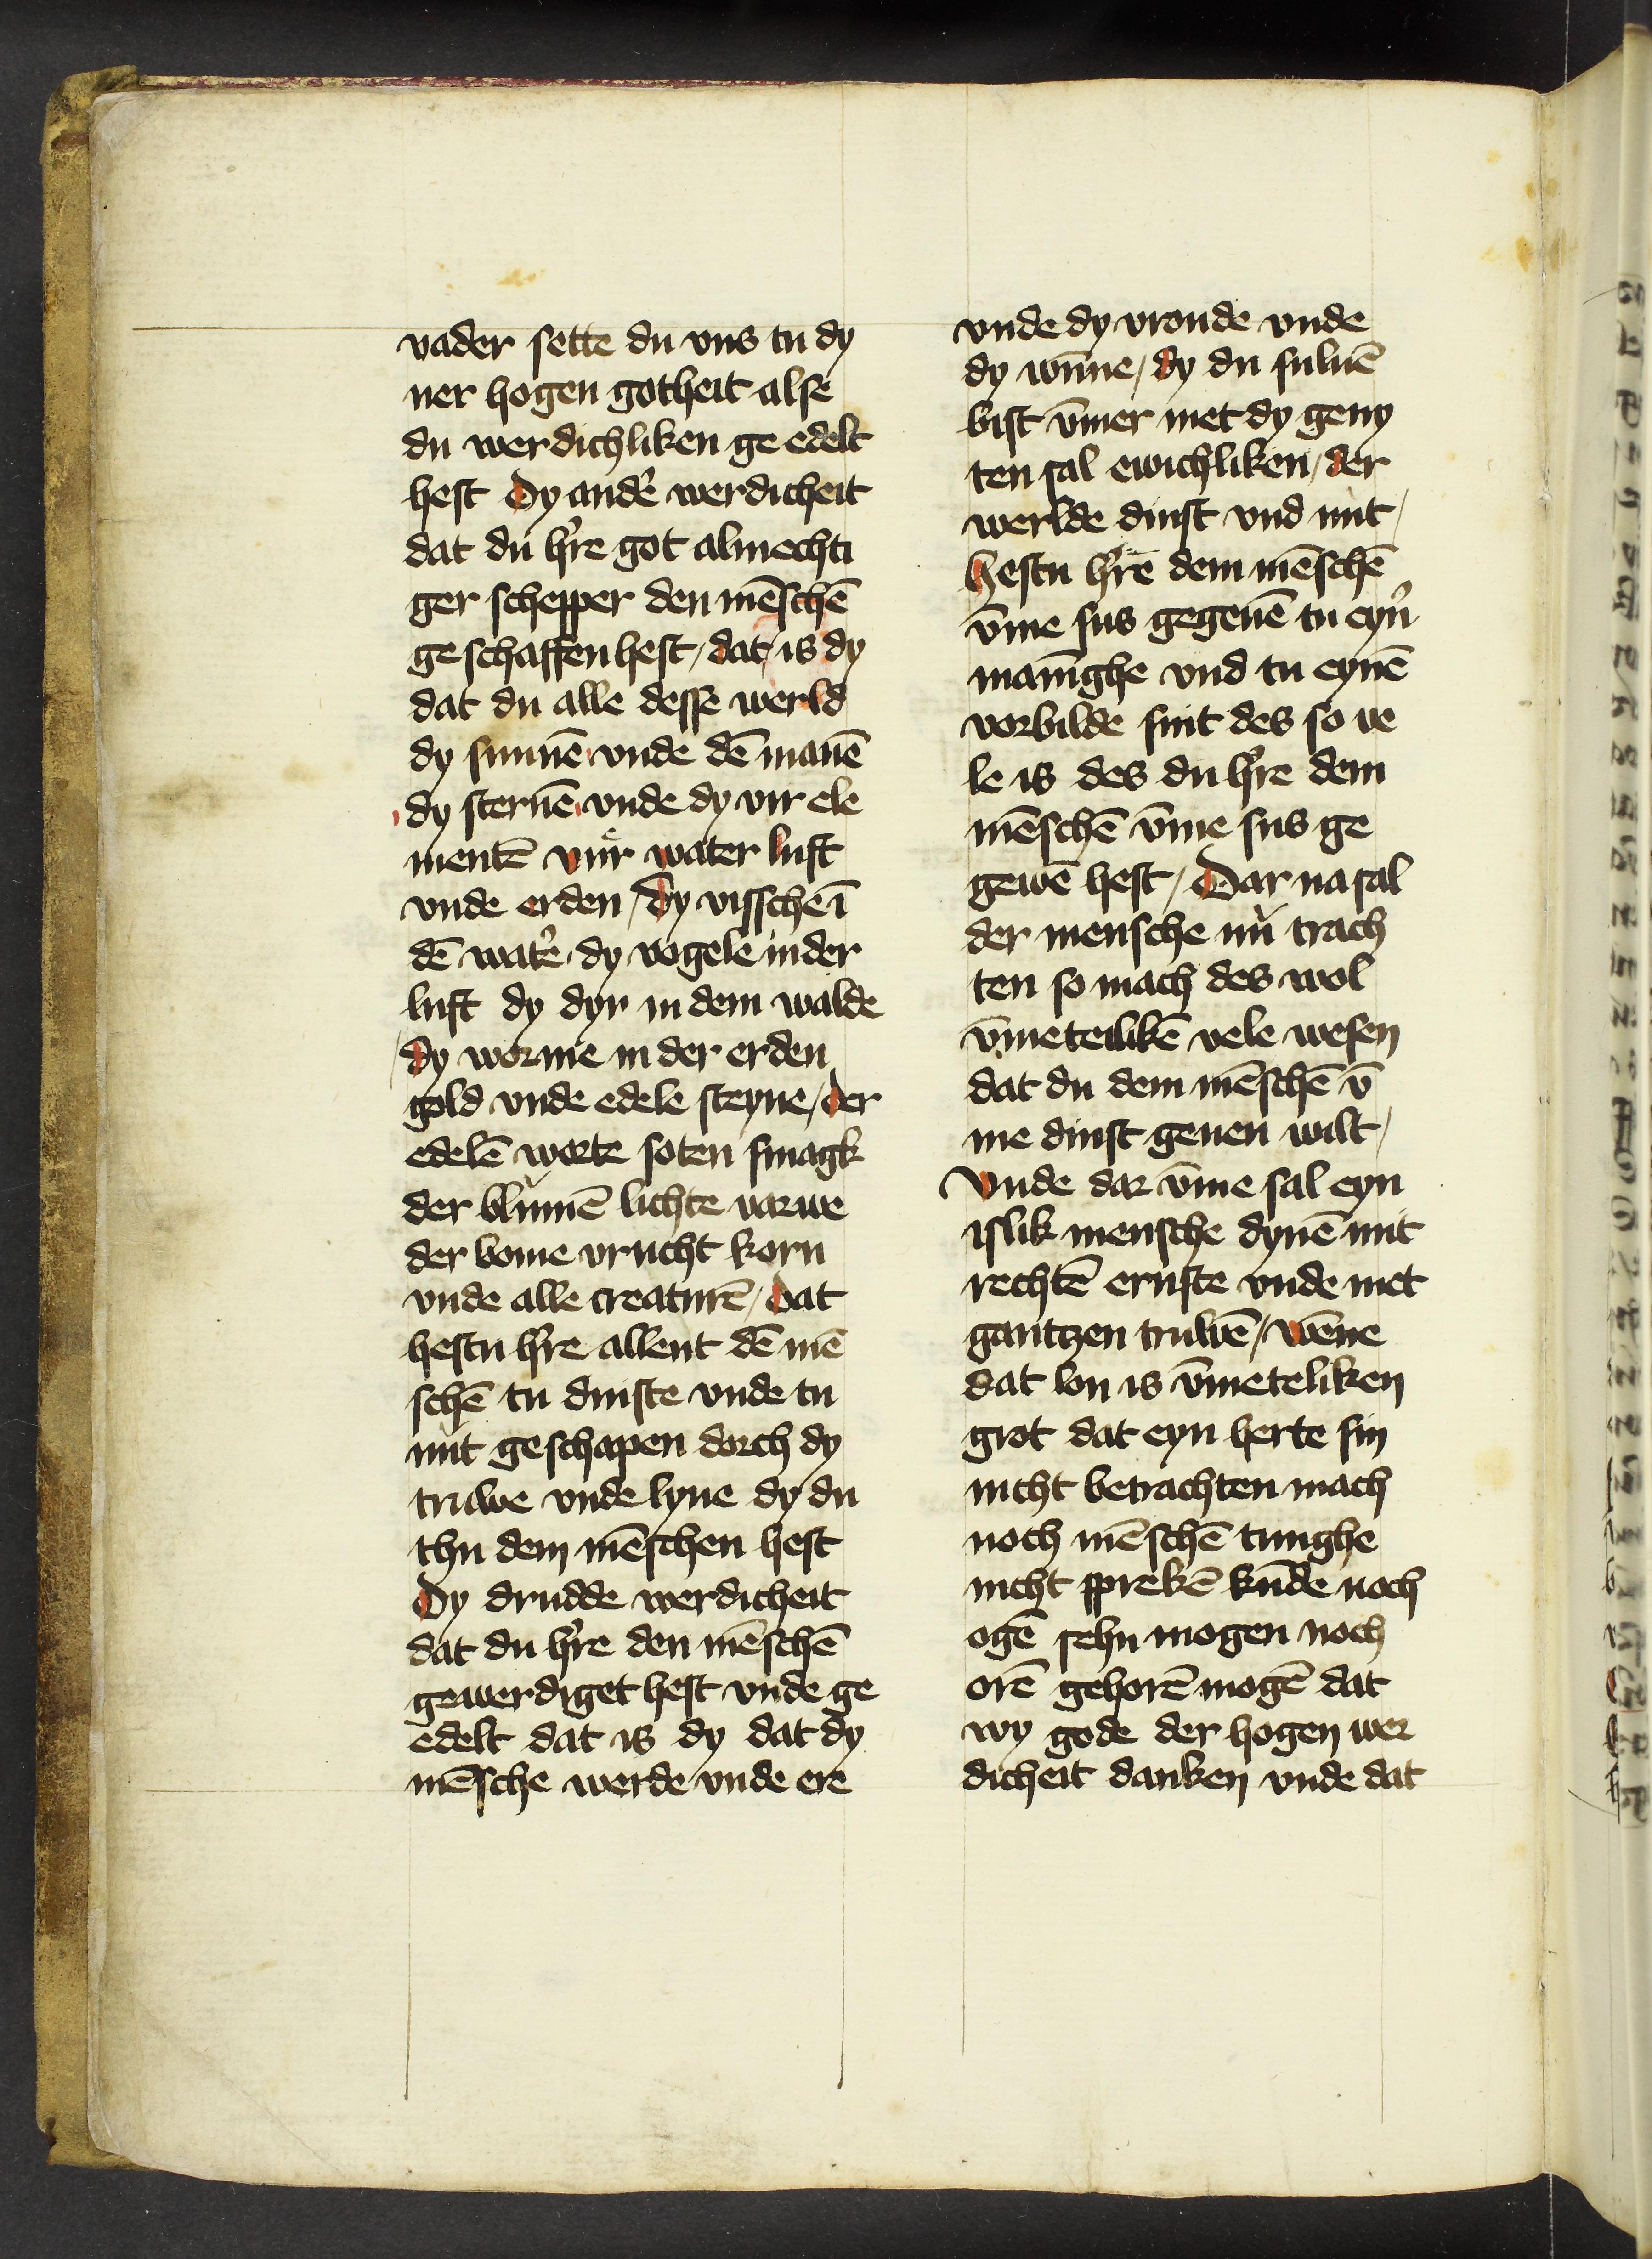 vader sette du vns tu dy
ner hogen gotheit alse
du werdichliken ge edelt
hest Dy ander̉ werdicheit
dat du hr̉e got almechti
ger schepper den mēschē
geschaffen hest / dat is dy
dat du alle desse werld
dy sunnē vnde dē manē
dy sternē vnde dy vir ele
mentē vur̊ water luft
vnde erden / dy visschē ī
dē water̉ dy vogele in der
luft dy dyr in dem walde
dy worme in der erden
gold vnde edele steyne / der
edelē worte soten smagk
der blumē lichte varwe
der bome vrucht korn
vnde alle creaturē / dat
hestu hr̉e allent dē mē
schē tu dinste vnde tu
nut geschapen dorch dy
truwe vnde lyue dy du
thu dem mēschen hest
Dy drudde werdicheit
dat du hr̉e den mēschē
gewerdiget hest vnde ge
edelt dat is dy dat dy
mēsche werde vnde ere
vnde dy vronde vnde
dy wūne / dy du suluē
bist v̄mer met dy geny
ten sal ewichliken / der
werlde dinst vnd nut /
hestu hr̉e dem mēschē
v̄me sus gegeuē tu eyn̉
maninghe vnd tu eynē
vorbilde sint des so ve
le is des du hr̉e dem
mēschē v̄me sus ge
gewē hest / Dar na sal
der mensche nu̇ trach
ten so mach des wol
v̄meteilikē vele wesen
dat du dem mēschē v̄
me dinst geuen wilt /
Vnde dar v̄me sal eyn
islik mensche dynē mit
rechtē ernste vnde met
gantzen truwē / wēne
dat lon is v̄meteliken
grot dat eyn herte sin
nicht betrachten mach
noch mēschē tunghe
nicht sprekē kūde noch
ogē sehn mogen noch
orē gehorē mogē dat
wy gode der hogen wer
dicheit danken vnde dat